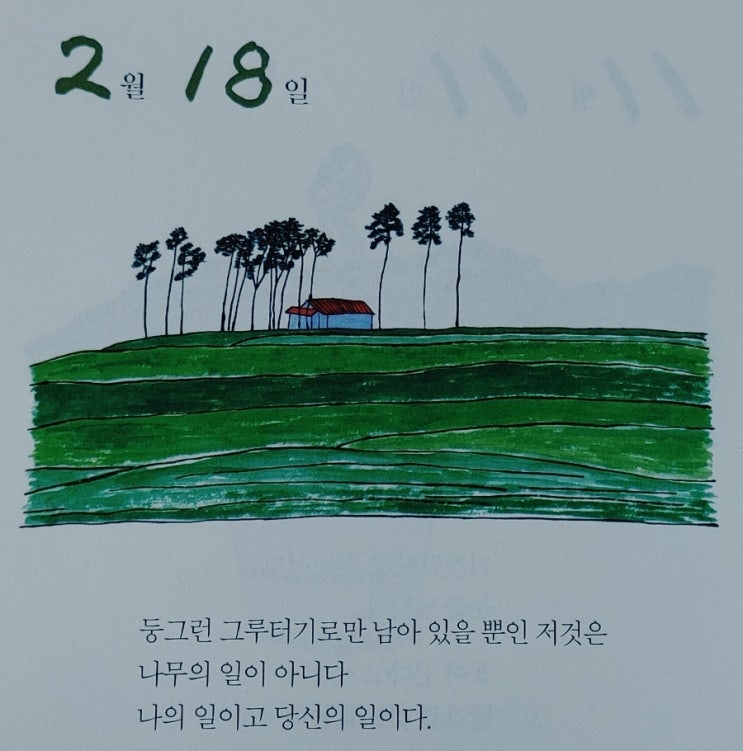 2월 18일
둥그런 그루터기로만 남아 있을 뿐인 저것은
나무의 일이 아니다
나의 일이고 당신의 일이다.